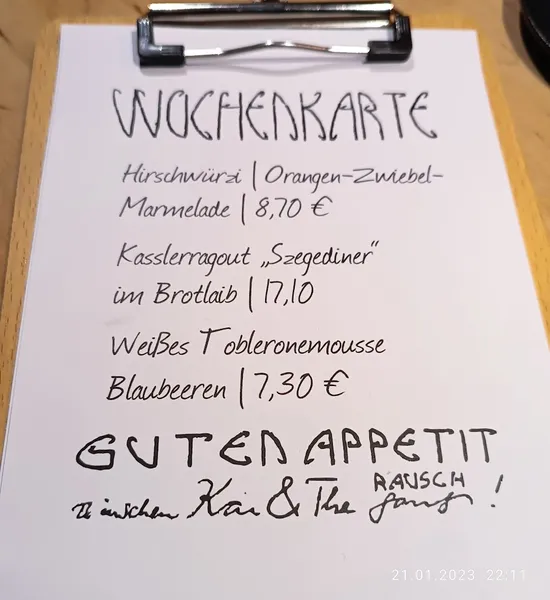 WOCHENKARTE
Hirschwürzi | Orangen-Zwiebel-
Marmelade | 8,70 €
Kasslerragout „Szegediner"
im Brotlaib | 17,10
Weißes Tobleronemousse
Blaubeeren | 7,30 €
GUTEN APPETIT
wünschen Kai & The RAUSCH gang !
21.01.2023 22:11